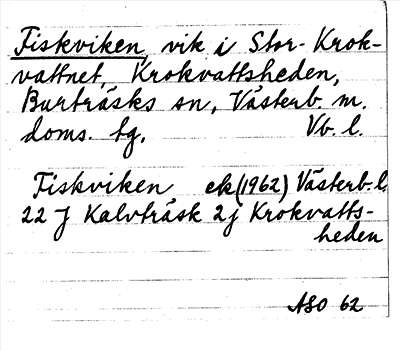 Fiskviken, vik i Stor-Krok-
vattnet, Krokvattsheden,
Burträsks sn, Västerb. m.
doms. tg, Vb. l.
Fiskviken ek (1962) Västerb. l.
22 J Kalvträsk 2j Krokvatts-
heden
ASO 62